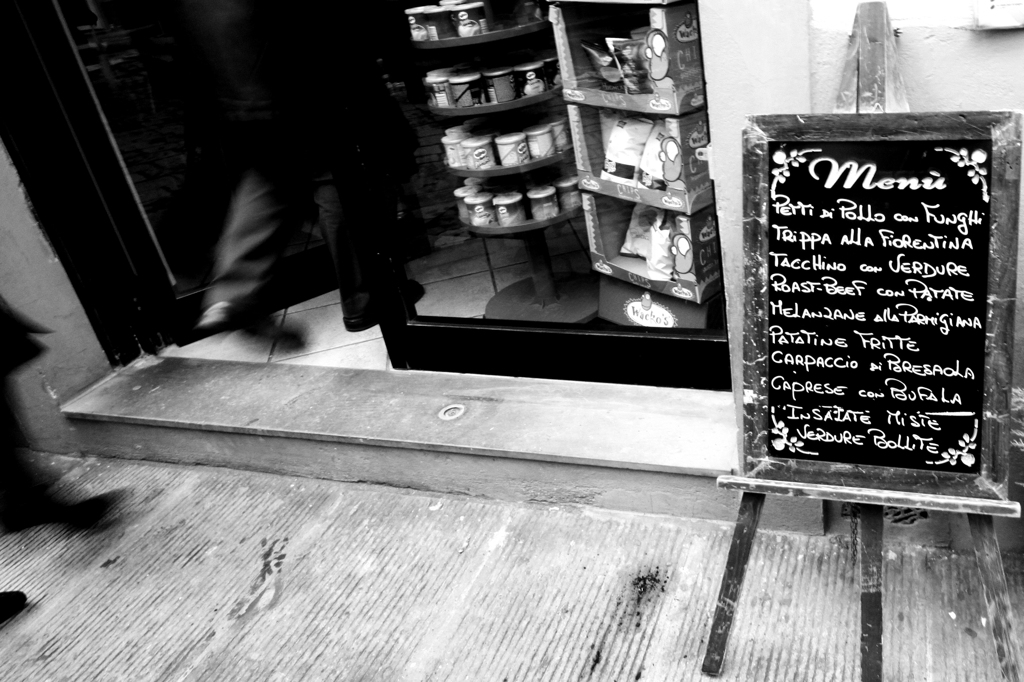 Wacko's
Wacko's
Menù
Petti di Pollo con Funghi
Trippa alla Fiorentina
Tacchino con Verdure
Roast-Beef con Patate
Melanzane alla Parmigiana
Patatine Fritte
Carpaccio di Bresaola
Caprese con Bufala
Insalate Miste
Verdure Bollite